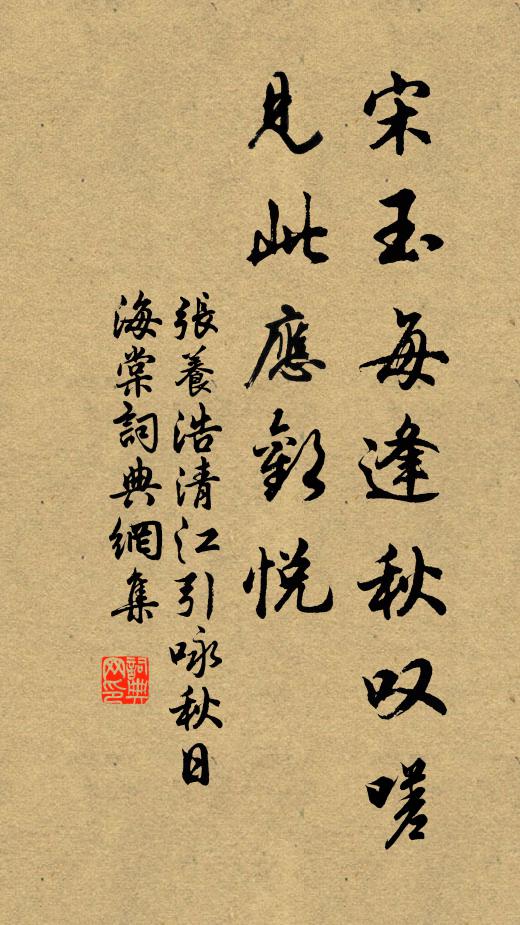 宋玉每逢秋叹嗟
見此應歡悅
張養浩清江引咏秋日
海棠詞典網集
詞典网印